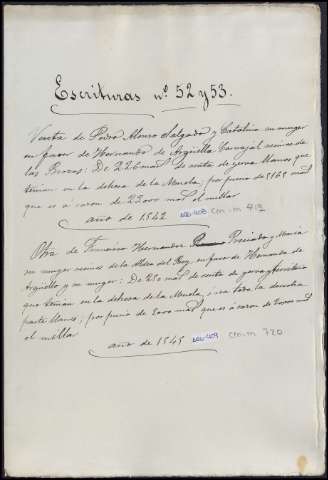 Escrituras nº 52 y 53.
Venta de Pedro Alonso Salgado y Catalina su muger
en favor de Hernando de Argüello Carvajal vecinos de
las Brozas: De 226 mrs de renta de yerva llanos que
tenian en la dehesa de la Muela, por precio de 5165 mrs
que es á razon de 22000 mrs el millar
año de 1542 cm-m 419
Otra de Francisco Hernandez y Maria
su muger vecinos de la Aldea del Rey, en favor de Hernando de
Argüello y su muger: De 250 mrs de renta de yerva
que tenian en la dehesa de la Muela, é en toda la
parte llanos, por precio de 5000 mrs que es á razon de 20000 mrs
el millar
año de 1545 cm-m 720